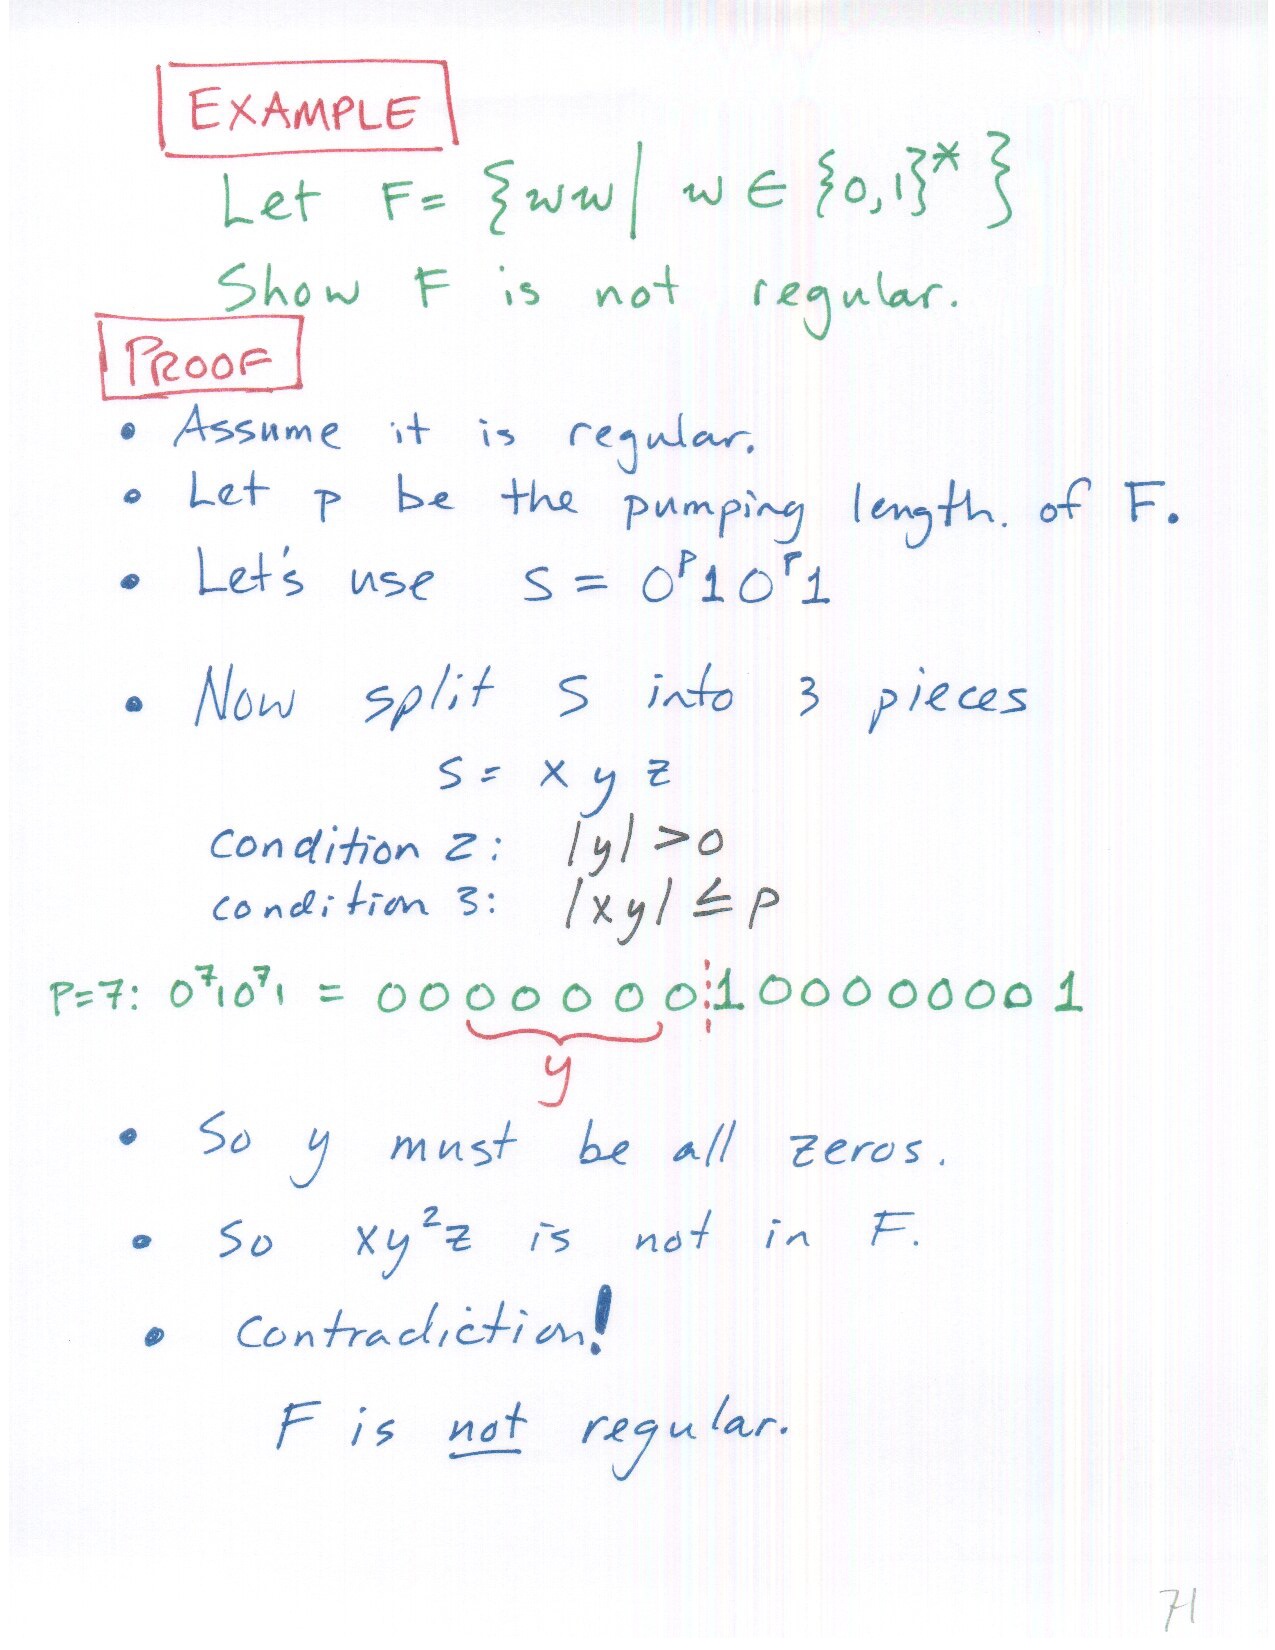 EXAMPLE
Let F= {ww | w ∈ {0,1}* }
Show F is not regular.
PROOF
• Assume it is regular.
• Let p be the pumping length. of F.
• Let's use S = 0ᴾ10ᴾ1
• Now split S into 3 pieces
S = x y z
condition 2: |y| > 0
condition 3: |xy| ≤ p
P=7: 0⁷10⁷1 = 00000000¦100000001
y
• So y must be all zeros.
• So xy²z is not in F.
• Contradiction!
F is not regular.
71